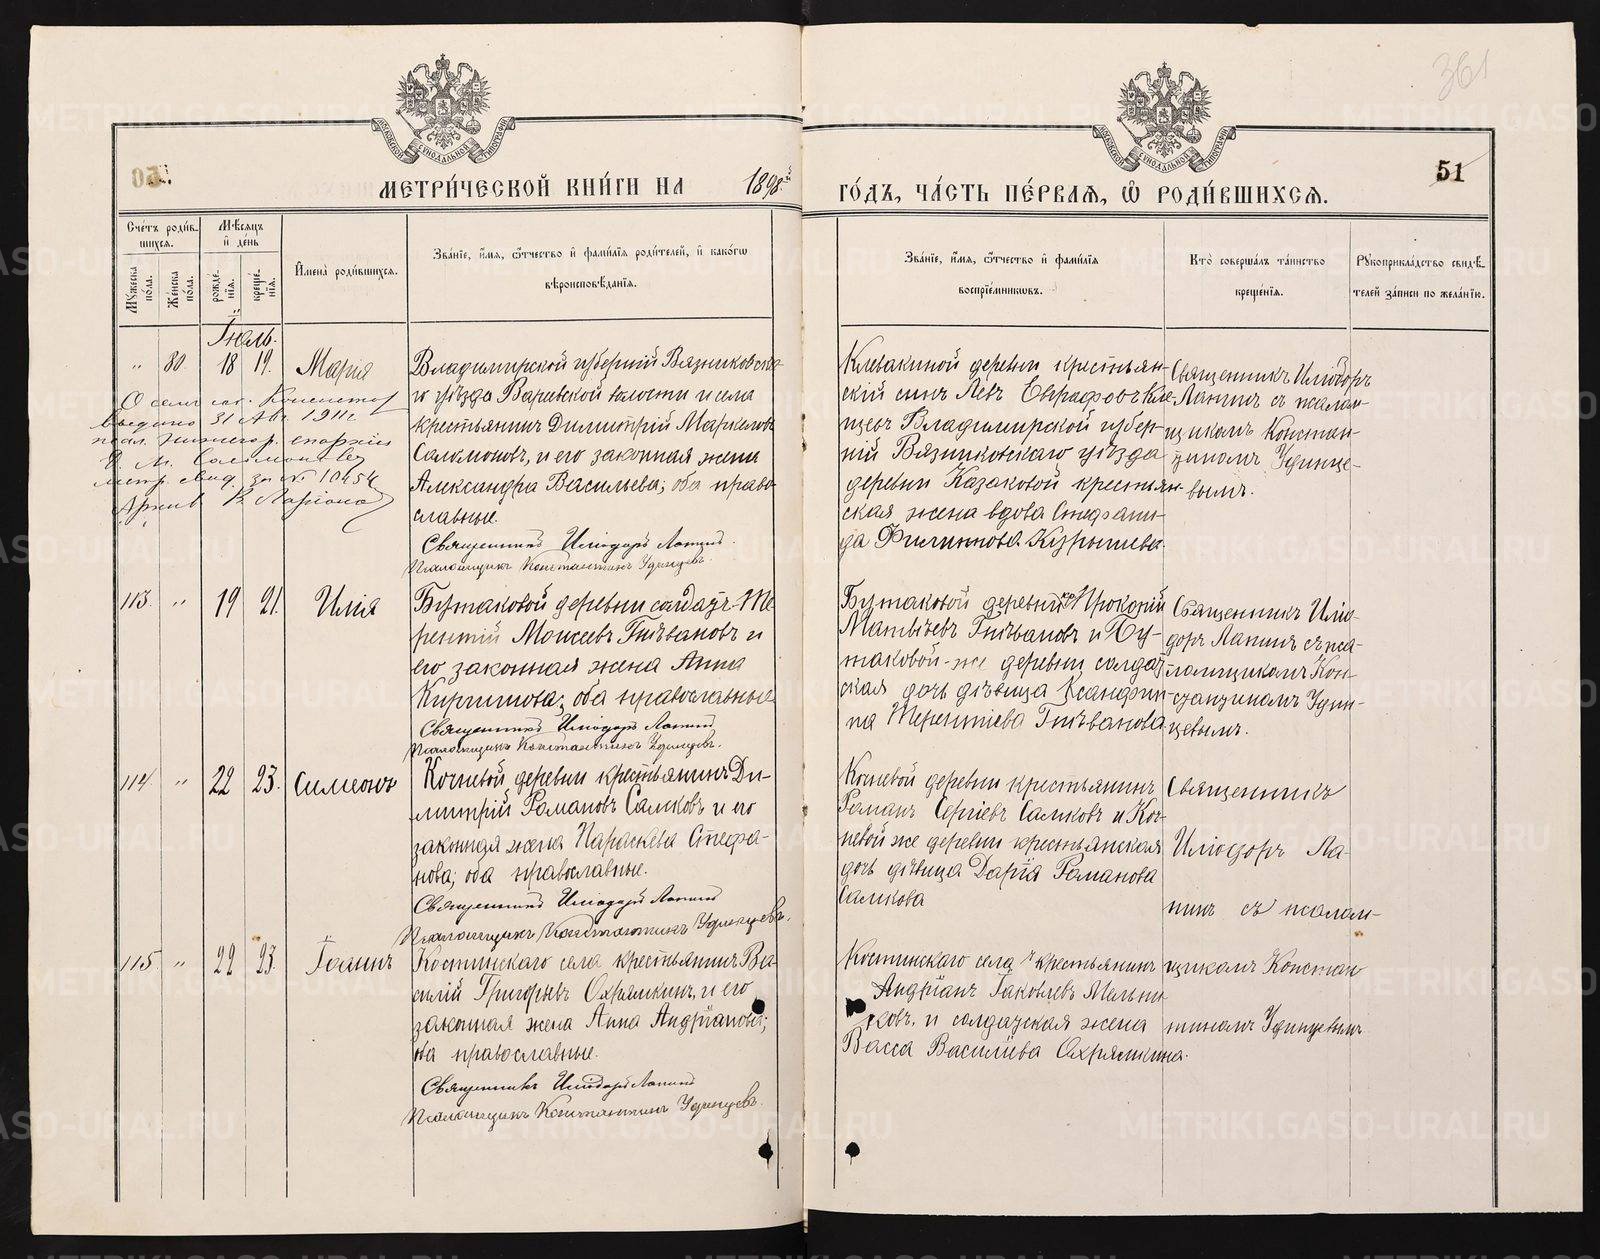 361
51
МЕТРИ́ЧЕСКОЙ КНИ́ГИ НА 1898й ГО́ДЪ, ЧА́СТЬ ПЕ́РВАЯ, Ѡ РОДИ́ВШИХСЯ.
Сче́тъ роди́в-
шихся.
Мꙋ́жеска по́ла.
Же́нска по́ла.
Мѣ́сяцъ и де́нь
рожде́нїя.
креще́нїя.
И́мена роди́вшихся.
Зва́нїе, и́мя, ѻ́тчество и фами́лїя роди́телей, и како́гѡ
вѣроисповѣ́данїя.
Зва́нїе, и́мя, ѻ́тчество и фами́лїя
воспрїе́мниковъ.
Кто̀ соверша́лъ та́инство
креще́нїя.
Рꙋкоприкла́дство свидѣ́-
телей за́писи по жела́нїю.
Іюль.
" 80. 18 19. Марія
Владимирской губерніи Вязниковска-
го уѣзда Варевской волости и села
крестьянинъ Димитрій Маркеловъ
Саломоновъ, и его законная жена
Александра Васильева; оба право-
славные.
Священникъ Иліодоръ Лапинъ.
Псаломщикъ Константинъ Удинцевъ.
Клевакиной деревни крестьян-
скій сынъ Левъ Евграфовъ Кле-
Владимирской губер-
ніи Вязниковскаго уѣзда
деревни Казаковой крестьян-
ская жена вдова Стефани-
да Филиппова
Священникъ Иліодоръ
Лапинъ съ псалом-
щикомъ Констан-
тиномъ Удинце-
вымъ.
выдано 31 Авг 1911г
метр. свид. за № 10454
113. " 19 21. Илія
Бутаковой деревни солдатъ Те-
рентій Моисеевъ Гнѣвановъ и
его законная жена Анна
Кириллова; оба православные.
Священникъ Иліодоръ Лапинъ
Псаломщикъ Константинъ Удинцевъ.
Бутаковой деревни Прокопій
Матвѣевъ Гнѣвановъ и Бу-
таковой-же деревни солдат-
ская дочь дѣвица Ксанфип-
па Терентіева Гнѣванова
Священникъ Иліо-
доръ Лапинъ съ пса-
ломщикомъ Кон-
стантиномъ Удин-
цевымъ.
114. " 22 23. Симеонъ
Кочневой деревни крестьянинъ Ди-
митрій Романовъ Самковъ и его
законная жена Параскева Стефа-
нова; оба православные.
Священникъ Иліодоръ Лапинъ
Псаломщикъ Константинъ Удинцевъ.
Кочневой деревни крестьянинъ
Романъ Сергіевъ Самковъ и Коч-
невой же деревни крестьянская
дочь дѣвица Дарія Романова
Самкова
Священникъ
Иліодоръ Ла-
пинъ съ псалом-
115. " 22 23. Іоаннъ
Костинскаго села крестьянинъ Ва-
силій Григорьевъ Охрямкинъ, и его
законная жена Анна Андріанова;
оба православные.
Священникъ Иліодоръ Лапинъ
Псаломщикъ Константинъ Удинцевъ.
Костинскаго села крестьянинъ
Андріанъ Іаковлевъ Мельни-
ковъ, и солдатская жена
Васса Василіева Охрямкина.
щикомъ Констан-
тиномъ Удинцевымъ
METRIKI.GASO-URAL.RU